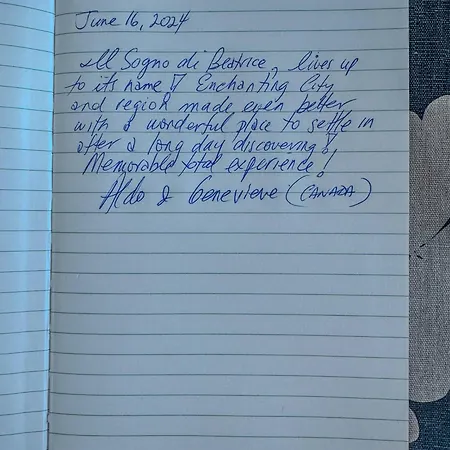 June 16, 2024
Il Sogno di Beatrice, lives up
to its name! Enchanting City
and region made even better
with a wonderful place to settle in
after a long day discovering!
Memorable total experience!
Aldo & Genevieve (CANADA)